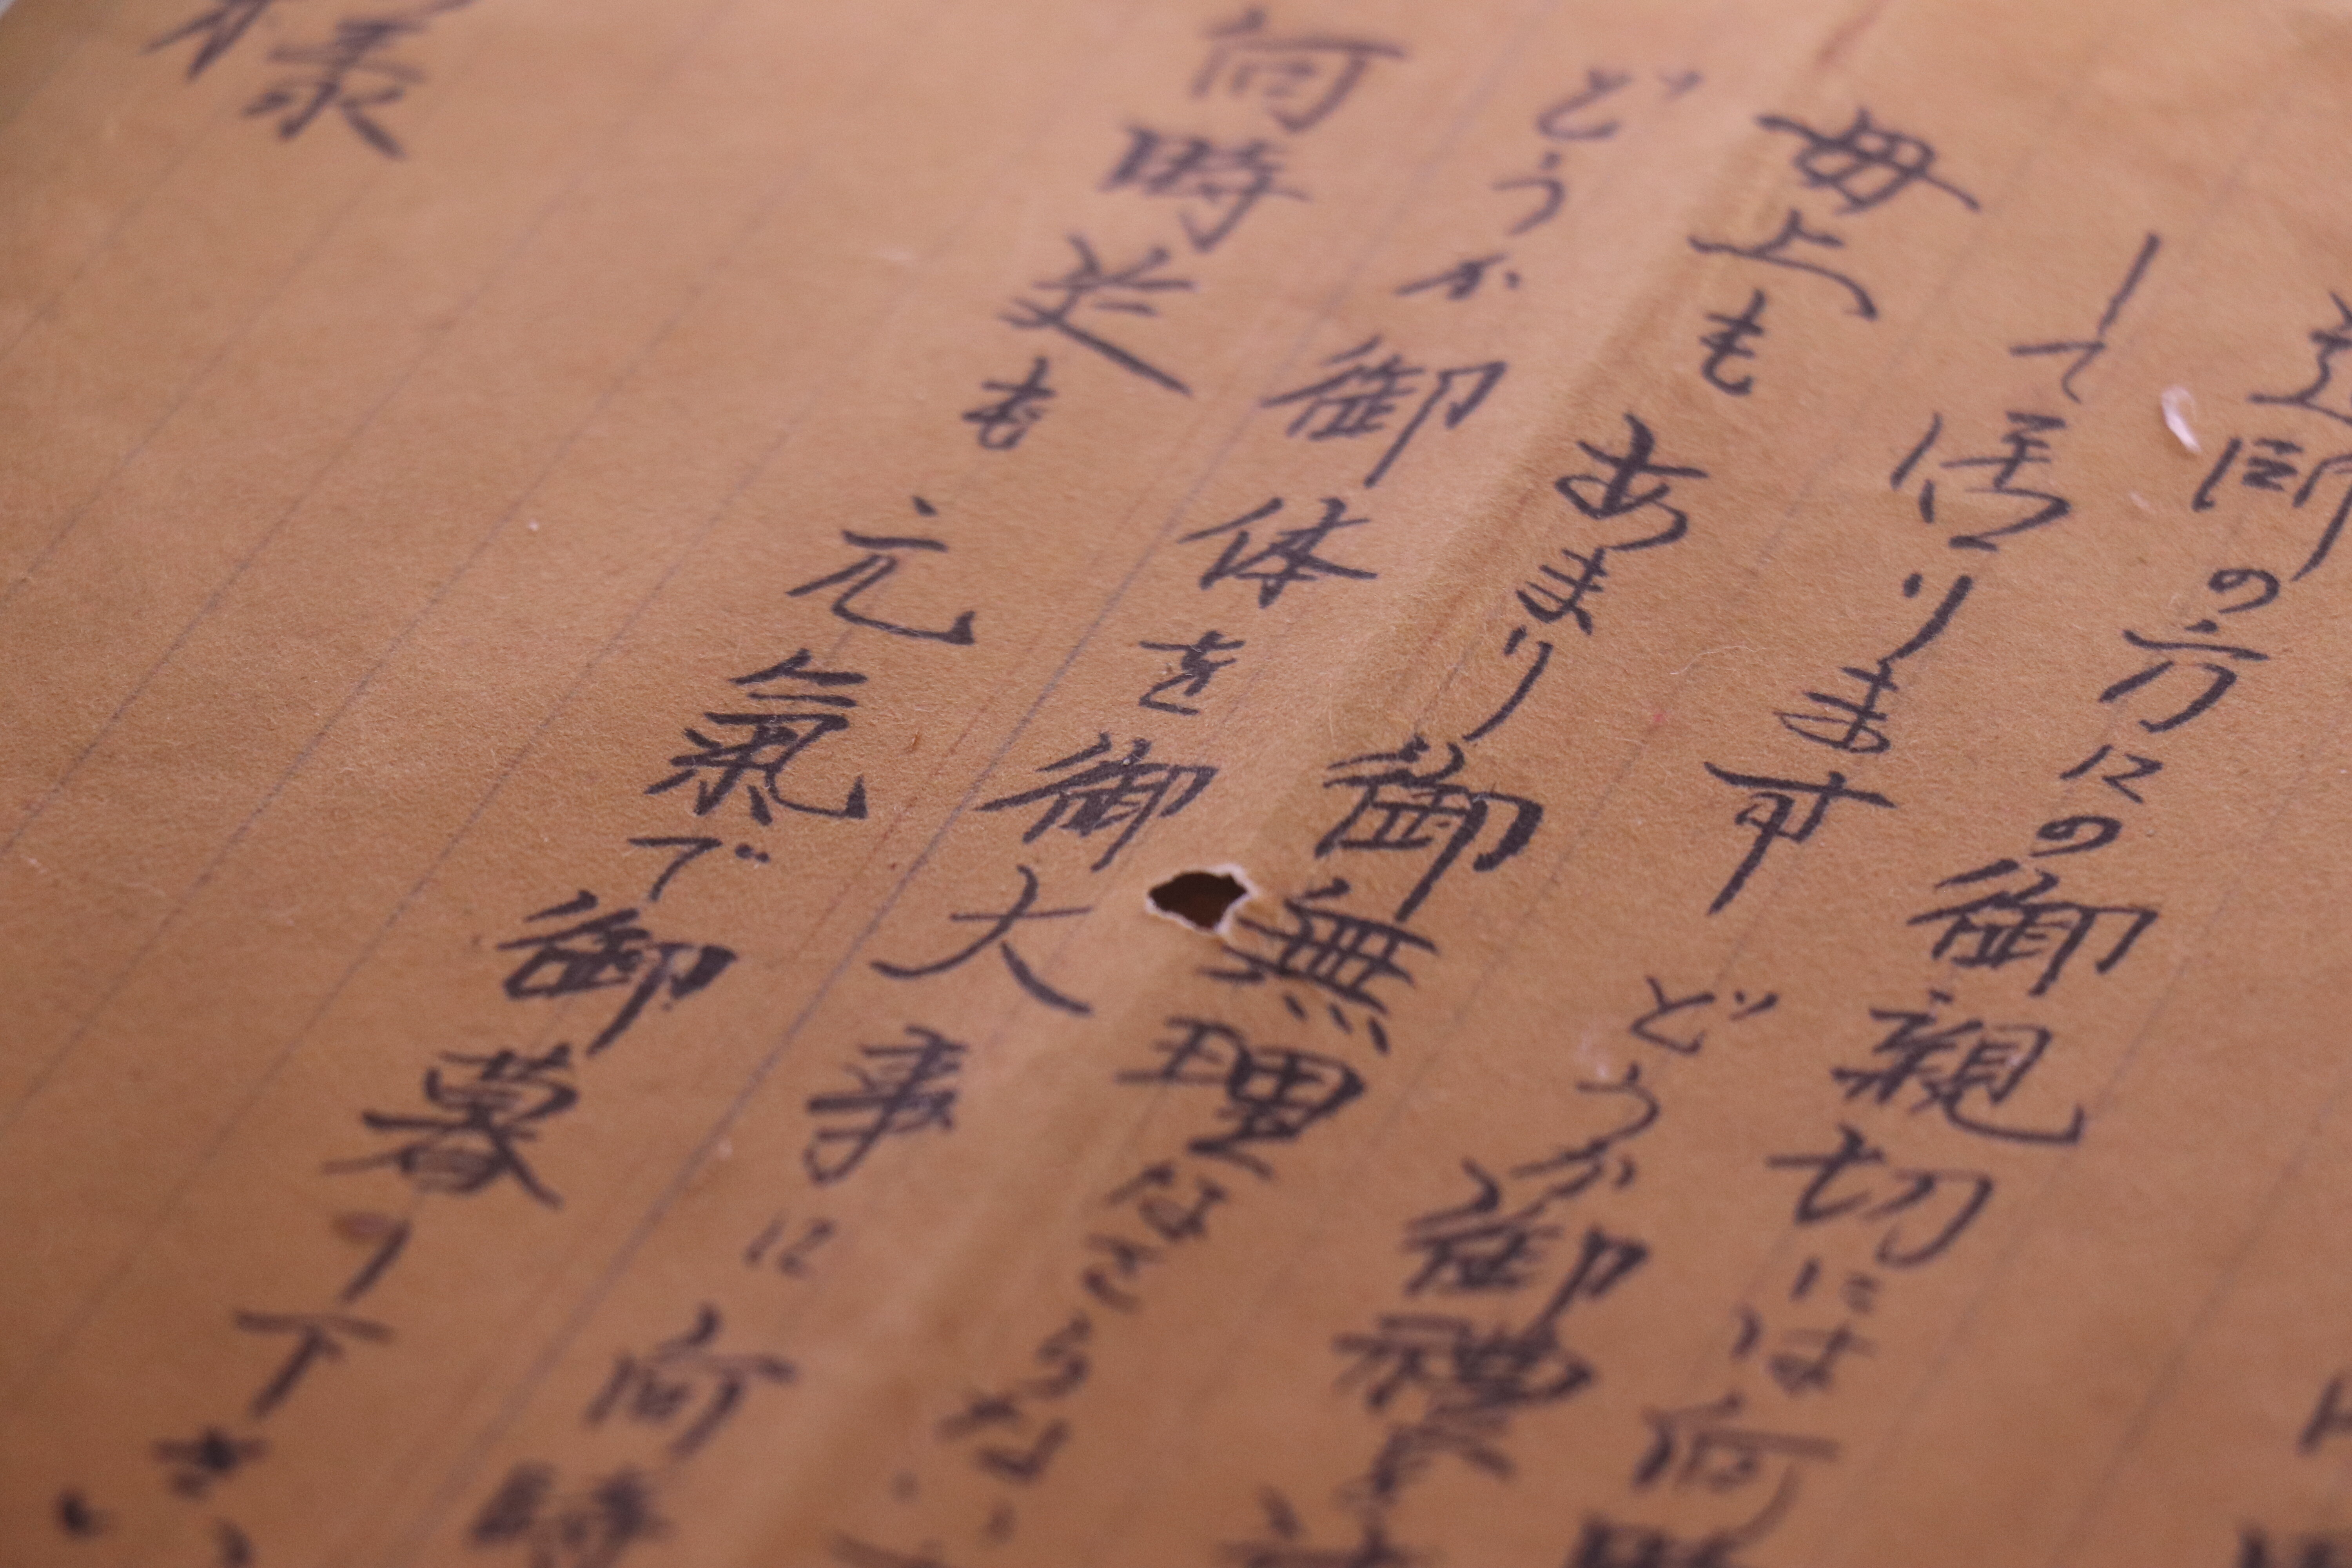 師の方にの御親切には何時
して居ります どうか御禮を
母上も あまり御無理なさらない
どうか御体を御大事に何時
何時迄も元氣で御暮り下さい
様